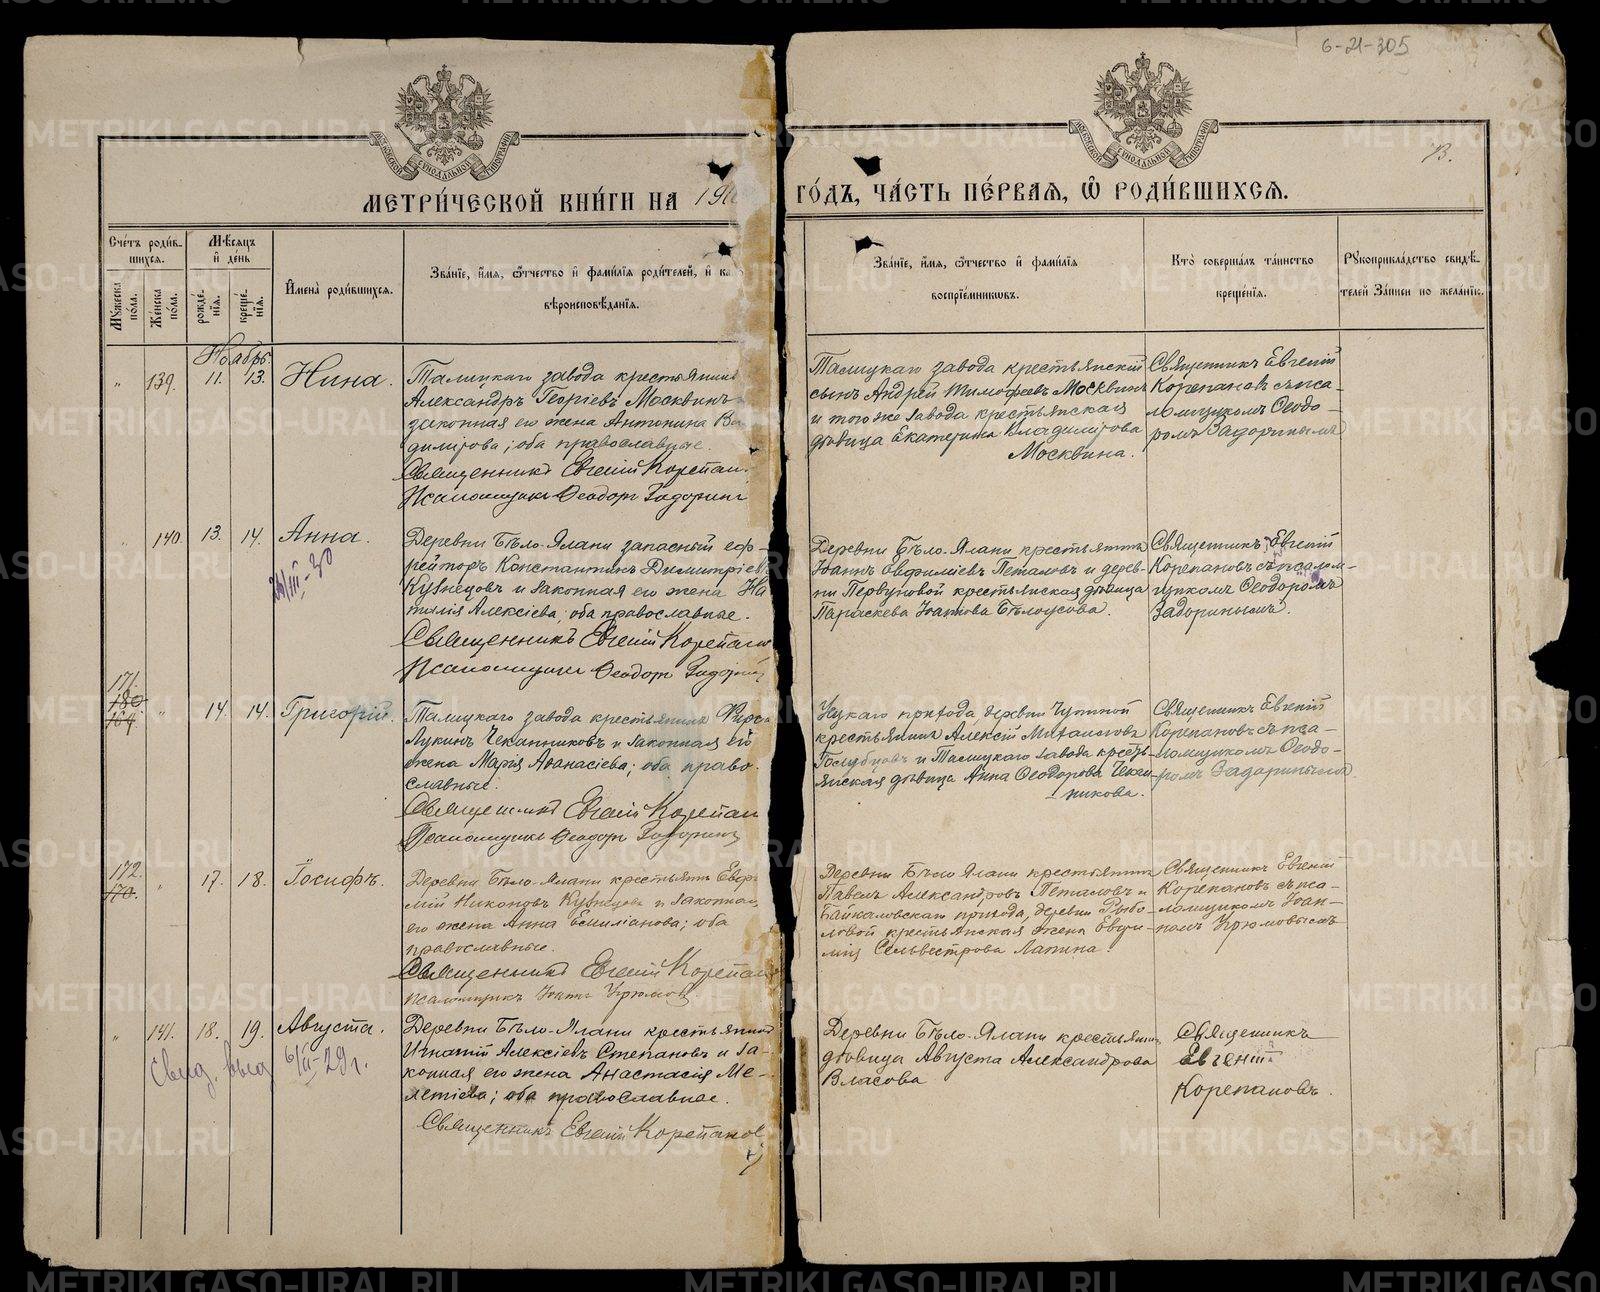 6-21-305
МЕТРИ́ЧЕСКОЙ КНИ́ГИ НА 19
ГО́ДЪ, ЧА́СТЬ ПЕ́РВАЯ, Ѡ҆ РОДИ́ВШИХСЯ.
Сче́тъ роди́в-
шихся.
Му́жеска
по́ла.
Же́нска
по́ла.
Мѣ́сяцъ
и҆ де́нь
рожде́-
нїя.
креще́-
нїя.
И҆мена̀ роди́вшихся.
Зва́нїе, и҆́мя, ѻ҆́тчество и҆ фами́лїя роди́телей, и҆ ка
вѣроисповѣ́данїя.
Зва́нїе, и҆́мя, ѻ҆́тчество и҆ фами́лїя
воспрїе́мниковъ.
Кто̀ соверша́лъ та́инство
креще́нїя.
Рꙋкоприкла́дство свидѣ́-
телей за́писи по жела́нїю.
Ноябрь.
139. 11. 13. Нина.
Талицкаго завода крестьянинъ
Александръ Георгіевъ Москвинъ
законная его жена Антонина Вла
димірова; оба православные.
Священникъ Евгеній Корепан
Псаломщикъ Ѳеодоръ Задорин
Талицкаго завода крестьянскій
сынъ Андрей Тимофеевъ Москвинъ
и того же завода крестьянская
дѣвица Екатерина Владимірова
Москвина.
Священникъ Евгеній
Корепановъ съ пса-
ломщикомъ Ѳеодо-
ромъ Задоринымъ
140. 13. 14. Анна.
Деревни Бѣло-Ялани запасный еф-
рейторъ Константинъ Димитріев
Кузнецовъ и законная его жена На
талія Алексіева; оба православные.
Священникъ Евгеній Корепано
Псаломщикъ Ѳеодоръ Задорин
Деревни Бѣло-Ялани крестьянинъ
Іоаннъ Евфиміевъ Петаловъ и дерев-
ни Первуновой крестьянская дѣвица
Параскева Іоаннова Бѣлоусова.
Священникъ Евгеній
Корепановъ съ псалом-
щикомъ Ѳеодоромъ
Задоринымъ.
/III-30
171.
180.
169.
14. 14. Григорій.
Талицкаго завода крестьянинъ Ѳирс
Лукинъ Чеканниковъ и законная его
жена Марія Аѳанасіева; оба право-
славные.
Священникъ Евгеній Корепан
Псаломщикъ Ѳеодоръ Задорин
прихода деревни Чупиной
крестьянинъ Алексій Михаиловъ
Голубцовъ и Талицкаго завода кресть-
янская дѣвица Анна Ѳеодорова Чекан-
никова.
Священникъ Евгеній
Корепановъ съ пса-
ломщикомъ Ѳеодо-
ромъ Задоринымъ
172.
170.
17. 18. Іосифъ.
Деревни Бѣло-Ялани крестьянинъ Евѳи
мій Никоновъ Кузнецовъ и законная
его жена Анна Емиліанова; оба
православные.
Священникъ Евгеній Корепан
псаломщикъ Іоаннъ Угрюмов
Деревни Бѣло-Ялани крестьянинъ
Павелъ Александровъ Петаловъ и
Байкаловскаго прихода, деревни Рыбо-
ловой крестьянская жена Евѳи-
мія Сельвестрова Лапина
Священникъ Евгеній
Корепановъ съ пса-
ломщикомъ Іоан-
номъ Угрюмовымъ
141. 18. 19. Августа.
Деревни Бѣло-Ялани крестьянинъ
Игнатій Алексіевъ Степановъ и за-
конная его жена Анастасія Ме-
летіева; оба православные.
Священникъ Евгеній Корепанов
Деревни Бѣло-Ялани крестьянск
дѣвица Августа Александрова
Власова
Священникъ
Евгеній
Корепановъ.
свид. выд 6/II-29 г.
METRIKI.GASO-URAL.RU